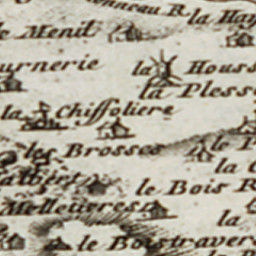 onneau R.
la Hay
le Menil
urnerie
la Houss
la Pless
la Chiffoliere
les Brosses
le P
la C
le Bois R
Melletieres
la
le Boistraver